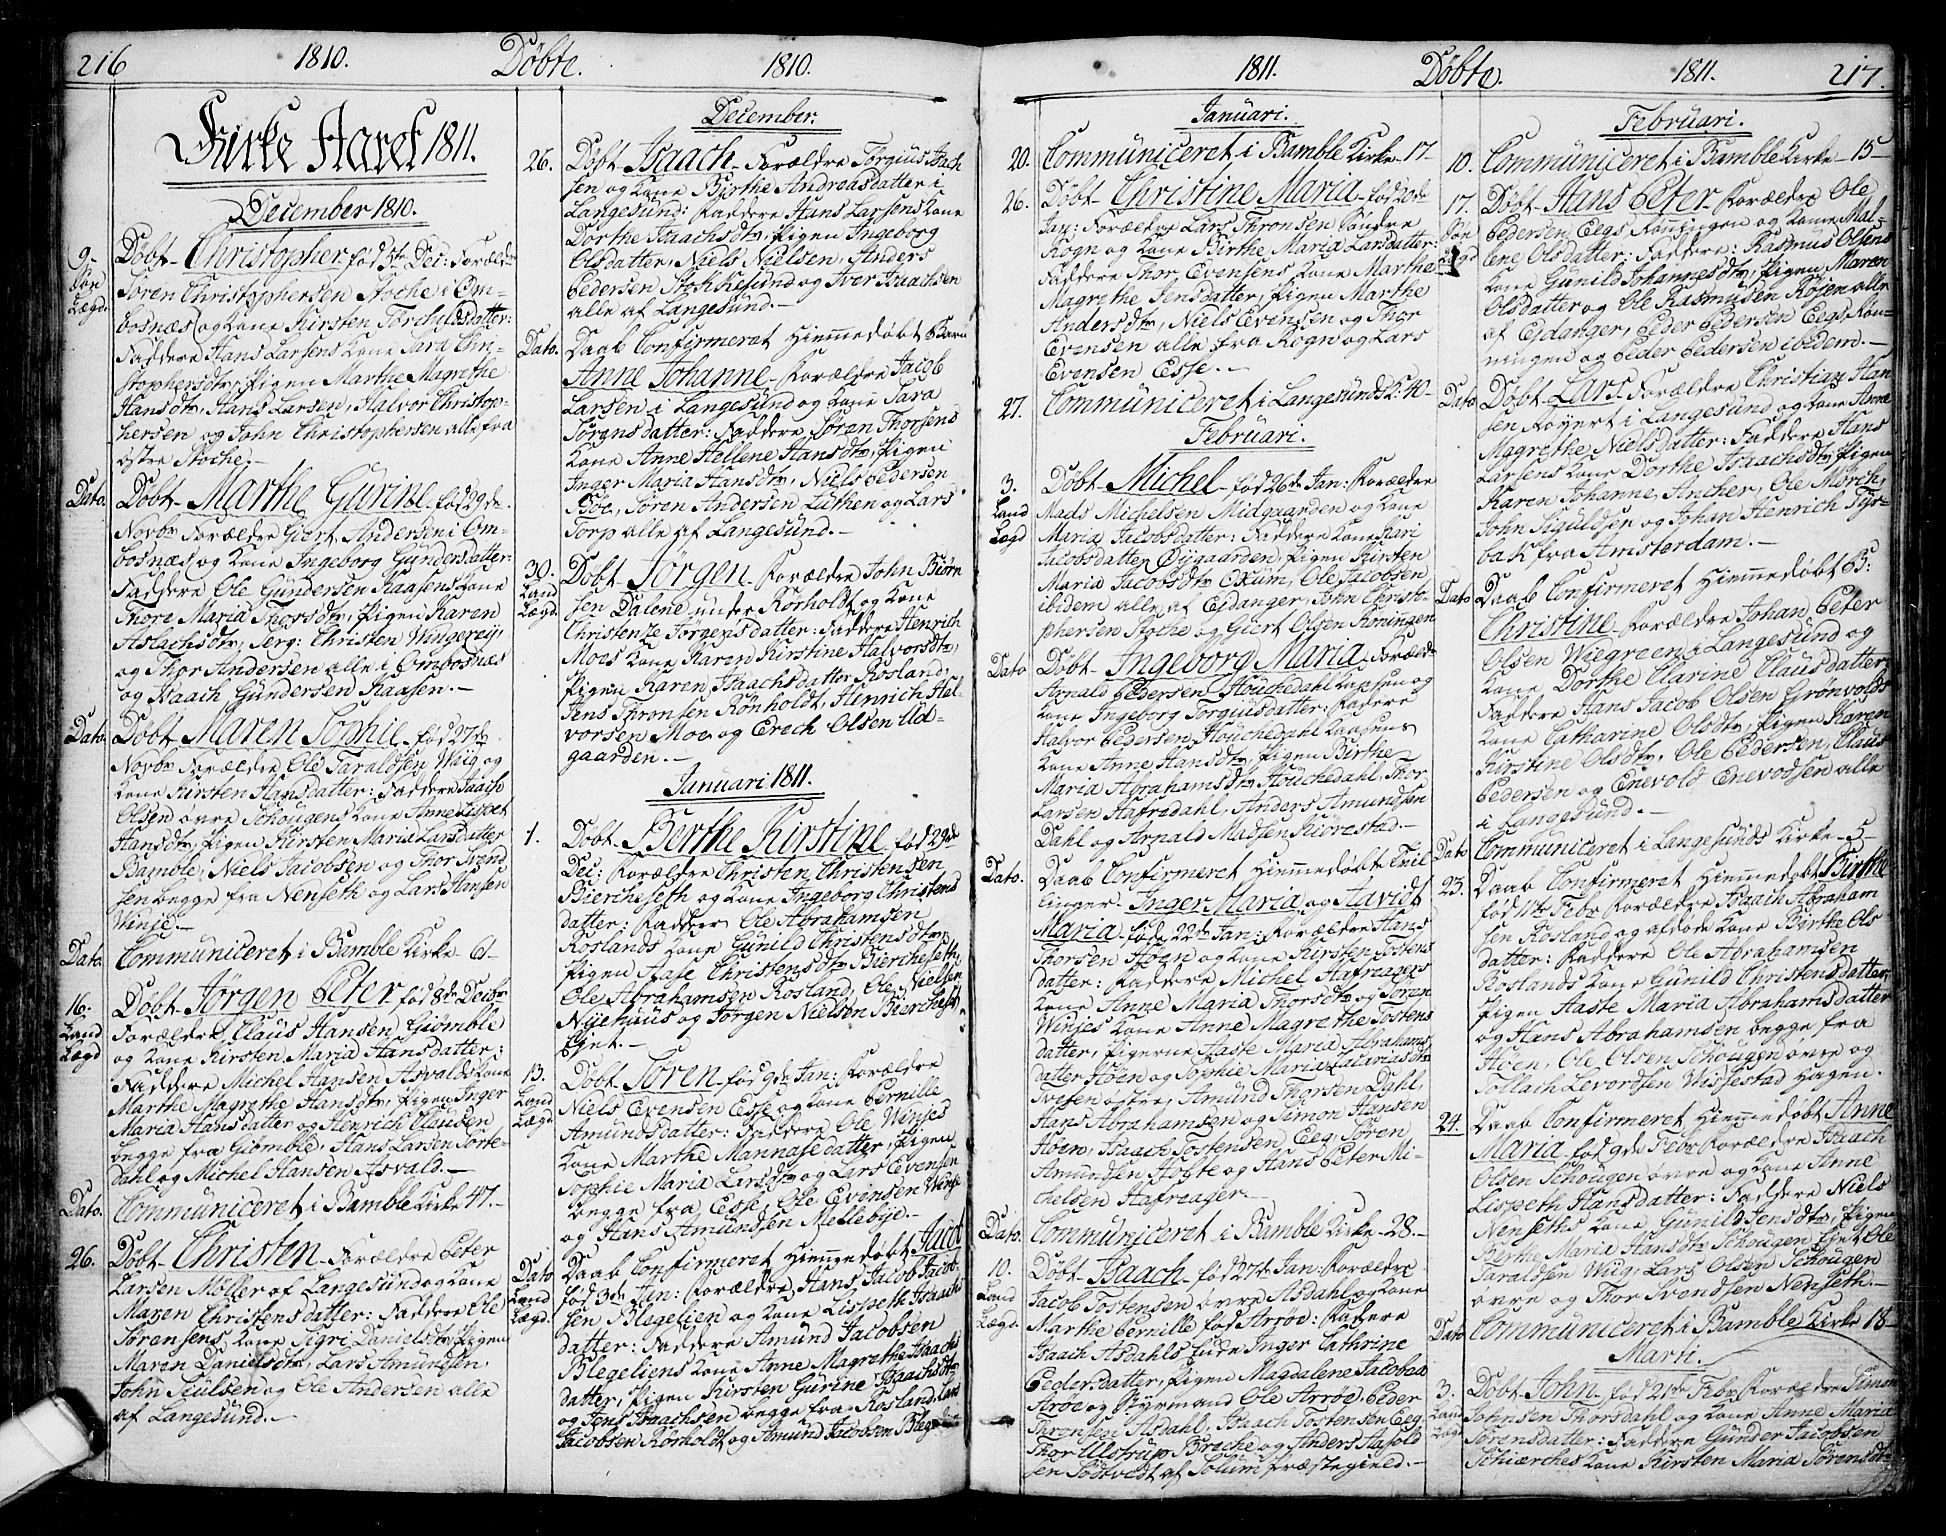 216 1810. Döbte. 1810.
Kirke Aaret 1811.
December 1810.
9. Döbt Christopher född 5te Dec: Foræld
Söe Lægd. Sören Christophersen Stoche i Om-
bosnæs og Kone Kirsten Torchildsdatter:
Faddere Hans Larsens Kone Sara Chri-
stophersdtr, Pigen Marthe Magrethe
Hansdtr, Hans Larsen, Halvor Christop-
hersen og John Christophersen alle fra
östre Stoche.-
Dato. Döbt Marthe Gurine föd 29de
Novbr Forældre Giert Andersen i Om-
bosnæs og Kone Ingeborg Gundersdatter:
Faddere Ole Gundersen Kaasens Kone
Thore Maria Thorsdtr, Pigen Karen
Aslachsdtr, Serg: Christen Wingereij,
og Thor Andersen alle i Ombosnæs
og Isaach Gundersen Kaasen.-
Dato. Döbt Maren Sophie föd 27de
Novbr Forældre Ole Taraldsen Wiig og
Kone Kirsten Hansdatter: Faddere Isaach
Olsen övre Schougens Kone Anne Lispet
Hansdtr, Pigen Kirsten Maria Larsdatter
Bamble, Niels Jacobsen og Thor Svend
sen begge fra Nenseth og Lars Hansen
Winje.-
Dato. Communiceret i Bamble Kirke 61-
16. Land Lægd Döbt Jörgen Peter föd 8de Decbr
Forældre Claus Hansen Giömble
og Kone Kirsten Maria Hansdatter:
Faddere Michel Hansen Asvalds Kone
Marthe Magrethe Hansdtr, Pigen Inger
Maria Hansdatter og Henrich Clausen
begge fra Giömble, Hans Larsen Torte-
Dahl og Michel Hansen Asvald.-
Dato. Communiceret i Bamble Kirke 47.-
26. Döbt Christen Forældre Peter
Larsen Möller af Langesund og Kone
Maren Christensdatter: Faddere Ole
Sörensens Kone Sigri Danielsdtr, Pigen
Maren Danielsdtr, Lars Amundsen
John Siulsen og Ole Andersen alle
af Langesund.-
December.
26. Döbt Isaach Forældre Torgius Isach
sen og Kone Birthe Andreasdatter i
Langesund: Faddere Hans Larsens Kone
Dorthe Isaachsdtr, Pigen Ingeborg
Olsdatter, Niels Nielsen, Anders
Pedersen Stokkesund og Iver Isaachsen
alle af Langesund.-
Dato. Daab Confirmeret Hiemmedöbt Barn
Anne Johanne Forældre Jacob
Larsen i Langesund og Kone Sara
Sörensdatter: Faddere Sören Thorsens
Kone Anne Hellene Hansdtr, Pigen
Inger Maria Hansdtr, Niels Pedersen
Böe, Sören Andersen Luthen og Lars
Torp alle af Langesund.-
30. Land Lægd. Döbt Jörgen Forældre John Biörn
sen Dalene under Rörholdt og Kone
Christense Jörgensdatter: Faddere Henrich
Moes Kone Karen Kirstine Halvorsdtr,
Pigen Karen Isaachsdatter Rosland,
Jens Thronsen Rönholdt, Henrich Hal-
vorsen Moe og Erech Olsen Ud-
gaarden.-
Januari 1811.
1. Döbt Berthe Kirstine föd 29de
Dec: Forældre Christen Christensen
Biercheseth og Kone Ingeborg Christens
datter: Faddere Ole Abrahamsen
Roslands Kone Gunild Christensdtr,
Pigen Aase Christensdtr Biercheseth,
Ole Abrahamsen Rosland, Ole Nielsen
Nijehuus og Jörgen Nielsen Biercheset
Ejet.-
13. Land Lægd. Döbt Sören föd 9de Jan: Forældre
Niels Evensen Esse og Kone Pernille
Amundsdatter: Faddere Ole Winjes
Kone Marthe Mannasedatter, Pigen
Sophie Maria Larsdtr og Lars Evensen
begge fra Esse, Ole Evensen Winje
og Hans Amundsen Mellebye.-
Dato Land Lægd. Daab Confirmeret Hiemmedöbt Jacob
föd 3de Jan: Forældre Hans Jacob Jacob-
sen Blegelien og Kone Lispeth Isaachs
datter: Faddere Amund Jacobsen
Blegeliens Kone Anne Magrethe Isaachs
datter, Pigen Kirsten Gurine Isaachsdtr
og Jens Isaachsen begge fra Rosland, Lars
Jacobsen Rörholdt og Amund Jacobsen
1811. Döbte. 1811. 217.
Januari.
20. Communiceret i Bamble Kirke 17-
26. Döbt Christine Maria föd 20de
Jan: Forældre Lars Thronsen Söndre
Rogn og Kone Birthe Maria Larsdatter:
Faddere Thor Evensens Kone Marthe
Magrethe Jensdatter, Pigen Marthe
Andersdtr, Niels Evensen og Thor
Evensen alle fra Rogn og Lars
Evensen Esse.-
27. Communiceret i Langesunds K: 40-
Februari.
3. Land Lægd Döbt Michel föd 26de Jan: Forældre
Mads Michelsen Midgaarden og Kone
Maria Jacobsdatter: Faddere Kone Kari
Jacobsdatter Öygaarden, Pigen Kirsten
Maria Jacobsdtr Oxum, Ole Jacobsen
ibidem alle af Ejdanger, John Christo-
phersen Stothe og Giert Olsen Röningen
Dato Döbt Ingeborg Maria Foræld-
Arnald Pedersen Houchedahl Kaasen og
Kone Ingeborg Torgiusdatter: Fadere
Halvor Pedersen Houchedahl Kaasens
Kone Anne Hansdtr, Pigen Birthe
Maria Abrahamsdtr Houchedahl, Thor
Larsen Hafredahl, Anders Amundsen
Dahl og Arnald Madsen Kiörestad.-
Dato. Daab Confirmeret Hiemmedöbte Tvil
linger Inger Maria og Aavidt
Maria föde 22de Jan: Forældre Hans
Thorsen Höen og Kone Kirsten Tostens
datter: Faddere Michel Hafreagers
Kone Anne Maria Thorsdtr og Sören
Winjes Kone Anne Magrethe Tostens
datter, Pigerne Aaste Maria Abrahams
datter Höen og Sophie Maria Zacariasdtr
Tveten östre, Amund Thorsen Dahl,
Hans Abrahamsen og Simon Hansen
Höen, Isaach Tostensen Eeg, Sören
Amundsen Holte og Hans Peter Mi-
chelsen Hafreager.-
Dato. Communiceret i Bamble Kirke 28.-
10. Land Lægd. Döbt Isaach föd 27de Jan: Forældre
Jacob Tostensen övre Asdahl og Kone
Marthe Pernille föd Arröe: Faddere
Isaach Asdahls Fude Inger Cathrine
Pedersdatter, Pigen Magdalene Jacobea
Aröe og Styrmand Ole Arröe, Peder
Thronsen Asdahl, Isaach Tostensen Eeg,
Thor Ulstrup Broche og Anders Aasold
sen Södtvedt af Solum Præstegield.-
Februari.
10. Communiceret i Bamble Kirke 15-
17. Söe Lægd Döbt Hans Peter Forældre Ole
Pedersen Eegs Rönningen og Kone Mal-
ene Olsdatter: Faddere: Rasmus Olsens
Kone Gunild Johannesdtr, Pigen Maren
Olsdatter og Ole Rasmusen Rösen alle
af Ejdanger, Peder Pedersen Eegs Rön-
ningen og Peder Pedersen ibidem.-
Dato Döbt Lars Forældre Christian Han
sen Röyert i Langesund og Kone Anne
Magrethe Nielsdatter: Faddere Hans
Larsens Kone Dorthe Isaachsdtr, Pigen
Karen Johanne Ancher, Ole Mörch,
John Siguldsen og Johan Henrich Tijs-
bak fra Amsterdam.-
Dato Daab Confirmeret Hiemmedöbt B:
Christine Forældre Johan Peter
Olsen Wiegreen i Langesund og
Kone Dorthe Clarine Clausdatter,
Faddere Hans Jacob Olsen Grönvolds
Kone Catharine Olsdtr, Pigen Karen
Kirstine Olsdtr, Ole Pedersen, Claus
Pedersen og Enevold Enevodsen alle
i Langesund.-
Dato Communiceret i Langesunds Kirke 5-
23. Daab Confirmeret Hiemmedöbt Birthe
föd 11te Febr Forældre Isaach Abraham
sen Rosland og afdöde Kone Birthe Ols
datter: Faddere Ole Abrahamsen
Roslands Kone Gunild Christensdatter,
Pigen Aaste Maria Abrahamsdatter
og Hans Abrahamsen begge fra
Höen, Ole Olsen Schougen övre og
Tollach Levordsen Wissestad Hagen.
24. Daab Confirmeret Hiemmedöbt Anne
Maria föd 9de Febr Forældre Isaach
Olsen Schougen övre og Kone Anne
Lispeth Hansdatter: Faddere Niels
Nenseths Kone Gunild Jensdtr, Pigen
Berthe Maria Hansdtr Schougen Ejet, Ole
Taraldsen Wiig, Lars Olsen Schougen
övre og Thor Svendsen Nenseth.-
Dato Communiceret i Bamble Kirke 18-
Marti.
3. Land Lægd Döbt John föd 21de Febr Forældre Simon
Johnsen Thorsdahl og Kone Anne Maria
Sörensdatter: Faddere Gunder Jacobsen
Schierches Kone Kirsten Maria Sörensdtr